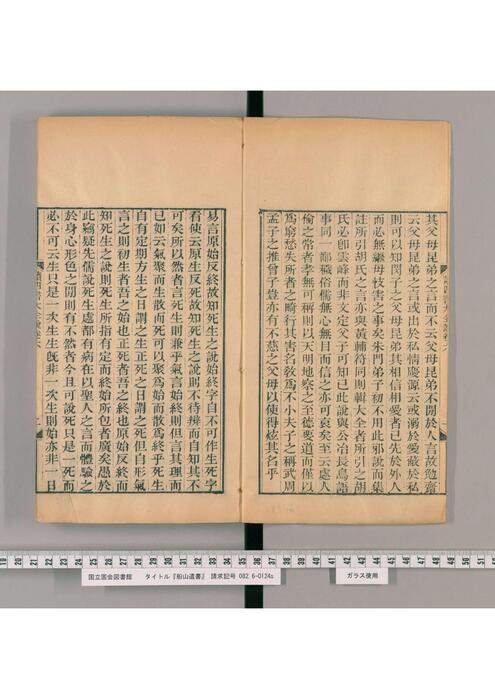 其父母昆弟之言而不云父母昆弟不間於人言故勉齋
云父母昆弟之言或出於私情慶源云或溺於愛蔽於私
則可以知閔子之父母昆弟其相信相愛者已先於外人
而必無繼母忮害之事矣朱門弟子初不用此邪說而集
註所引胡氏之言亦與黃輔符同則輯大全者所引之胡
氏必卽雲峰而非文定父子可知已此說與公冶長鳥語
事同一鄙穢俗儒無心無目而信之亦可哀矣至云處人
倫之常者孝無可稱則以天明地察之至德要道而僅以
爲窮愁失所者之畸行其害名敎爲不小夫子之稱武周
孟子之推曾子豈亦有不慈之父母以使得炫其名乎
易言原始反終故知死生之說始終字自不可作生死字
看使云原生反死故知死生之說則不待辨而自知其不
可矣所以然者言死生則兼乎氣言始終則但言其理而
已如云氣聚而生散而死可以聚爲始而散爲終乎死生
自有定期方生之日謂之生正死之日謂之死但自形氣
言之則初生者吾之始也正死者吾之終也原始反終而
知死生之說則死生所指有定而終始所包者廣矣愚於
此竊疑先儒說死生處都有病在以聖人之言而體驗之
於身心形色之閒則有不然者今且可說死只是一死而
必不可云生只是一次生生旣非一次生則始亦非一日
國立国会図書館 タイトル『船山遺書』 請求記号 082.6-0124s
ガラス使用